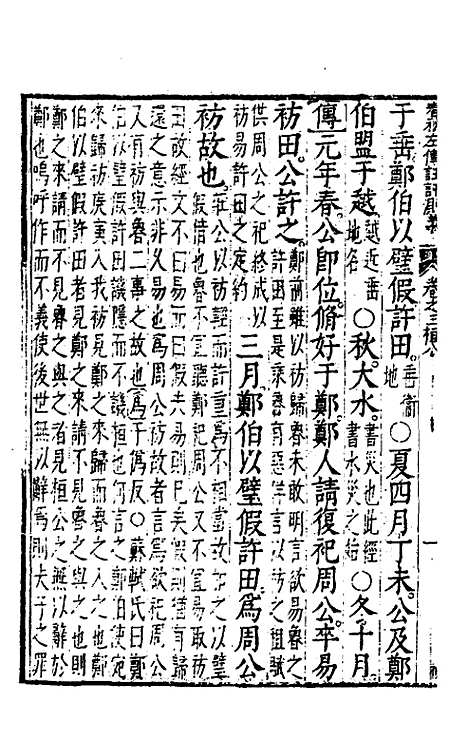 春秋左傳註評測義 卷之三桓公 一
于垂鄭伯以璧假許田垂衛地○夏四月丁未公及鄭
伯盟于越越近垂地名○秋大水書災也此經書水災之始○冬十月
傳元年春公即位脩好于鄭鄭人請復祀周公卒易
祊田公許之鄭前雖以祊歸魯未敢明言欲易魯之許田至是乘魯言以祊之租賦
供周公之祀終成以祊易許田之定約三月鄭伯以璧假許田為周公
祊故也莊公以祊許重為不相當故加之以璧假借也魯不宜聽鄭祀周公又不宜易取祊
田故經文不曰易而曰假夫易則已矣假則猶有復
還之意示非久易也為周公祊故者言為欲祀周公
又有祊與魯二事之故也為于偽反○蘇軾氏曰鄭
伯以璧假許田譏隱而不譏桓何言之鄭伯使宛
來歸祊庚寅入我祊見鄭之來歸而魯之入之也鄭
伯以璧假許田者見鄭之來請而不見魯之與之也則
鄭之來請而不見魯之與之者見桓公之無以辭於
鄭也嗚呼作而不義使後世無以辭焉則夫子之罪